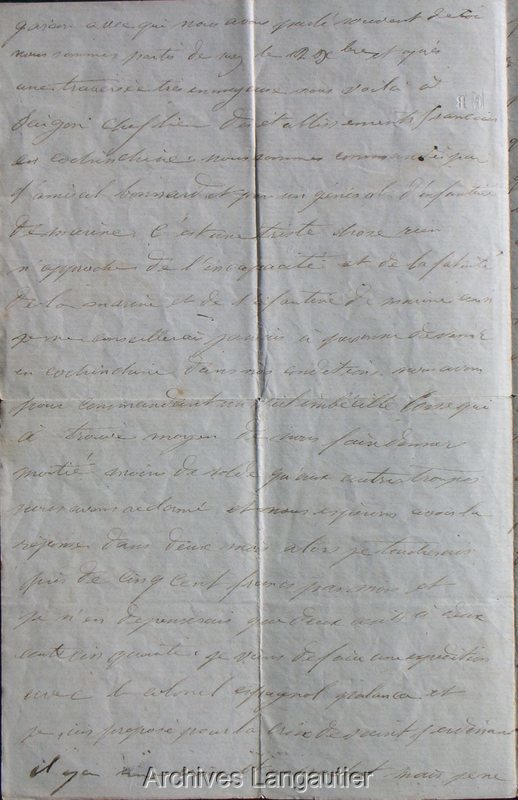 garçon avec qui nous avons parlé souvent de toi
nous sommes partis de le 12 Xbre et après
une traversée très ennuyeuse nous voilà à
Saigon chef lieu des établissements français
en cochinchine. nous sommes commandés par
l'amiral bonnard et par un général d'infanterie
de marine. c'est une triste chose rien
n'approche de l'incapacité et de la
de la marine et de l'infanterie de marine aussi
je ne conseillerai jamais à personne de venir
en cochinchine dans nos conditions. nous avons
pour commandant un imbécille Corse qui
à trouvé moyen de nous faire donner
moitié moins de solde qu'aux autres troupes
nous avons réclamé et nous espérons avoir la
réponse dans deux mois alors je toucherais
près de cinq cent francs par mois et
je n'en depenserais que deux cents à deux
cent cinquante. je viens de faire une expédition
avec le colonel espagnol palanca et
je suis proposé pour la croix de saint ferdinand
il y a mais je ne
Archives Langautier